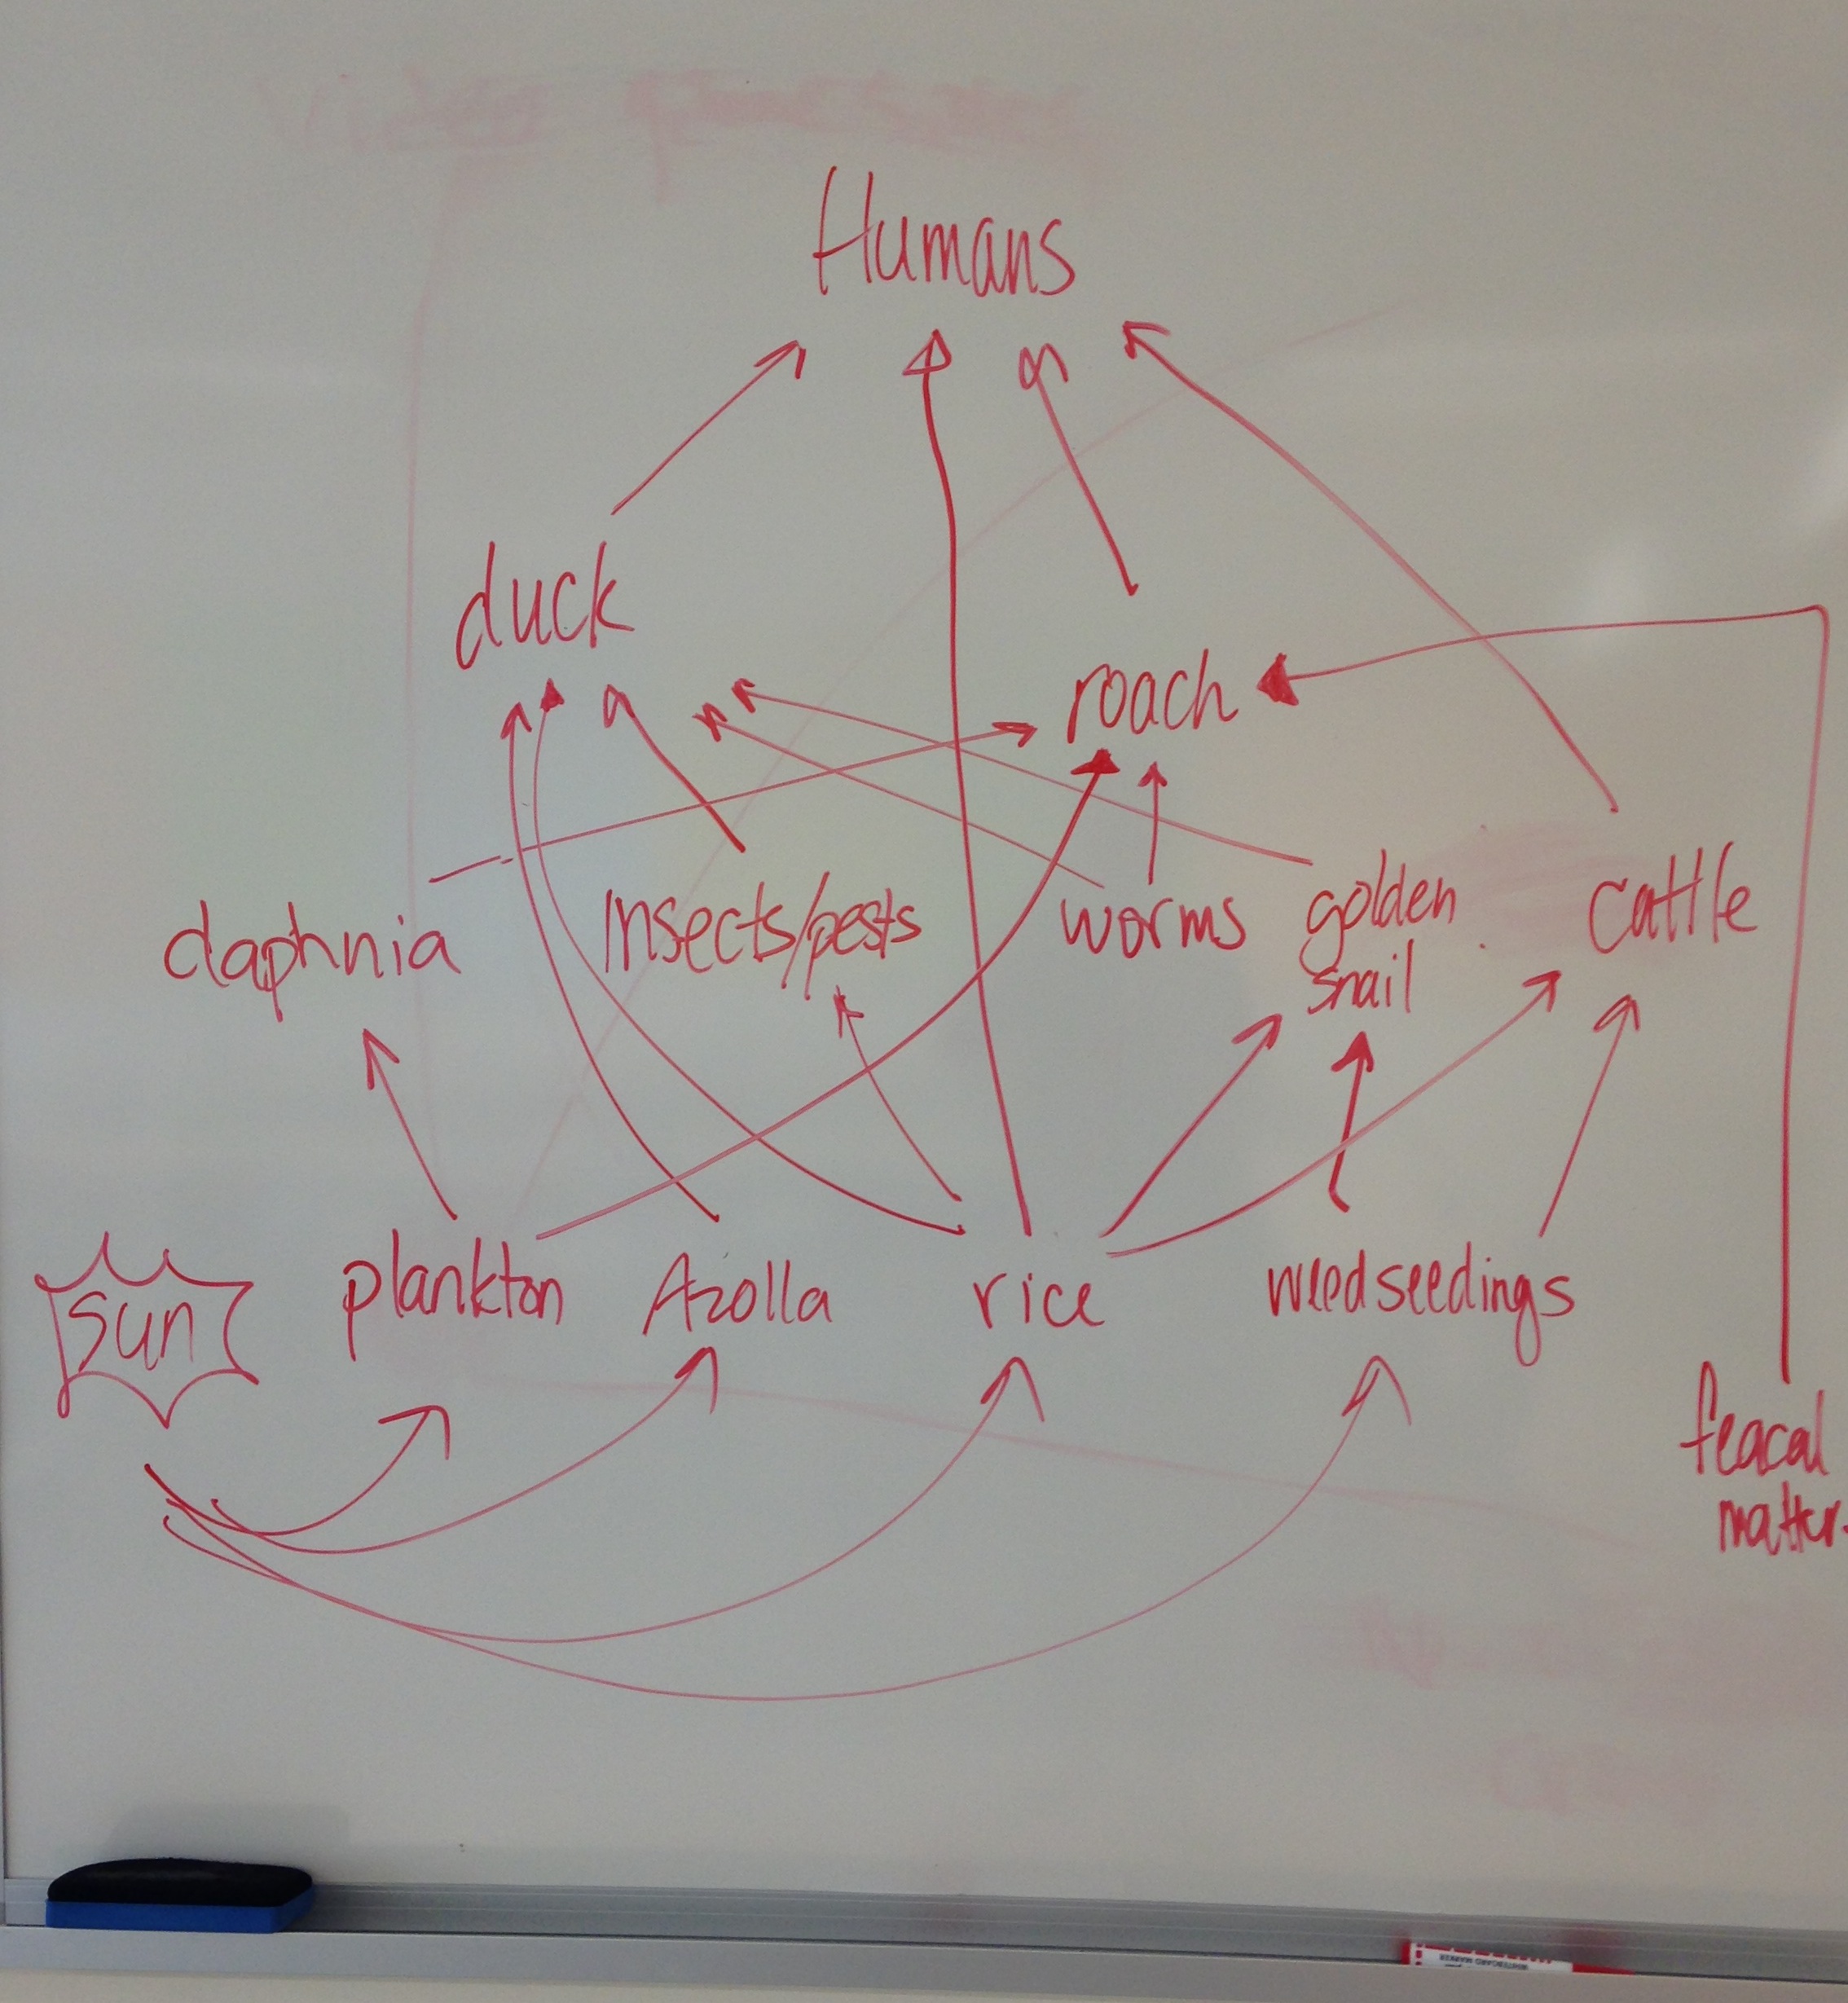 Humans
duck
roach
daphnia
insects/pests
worms
golden
snail
cattle
sun
plankton
Azolla
rice
weedseedings
feacal
matter
WHITEBOARD MARKER